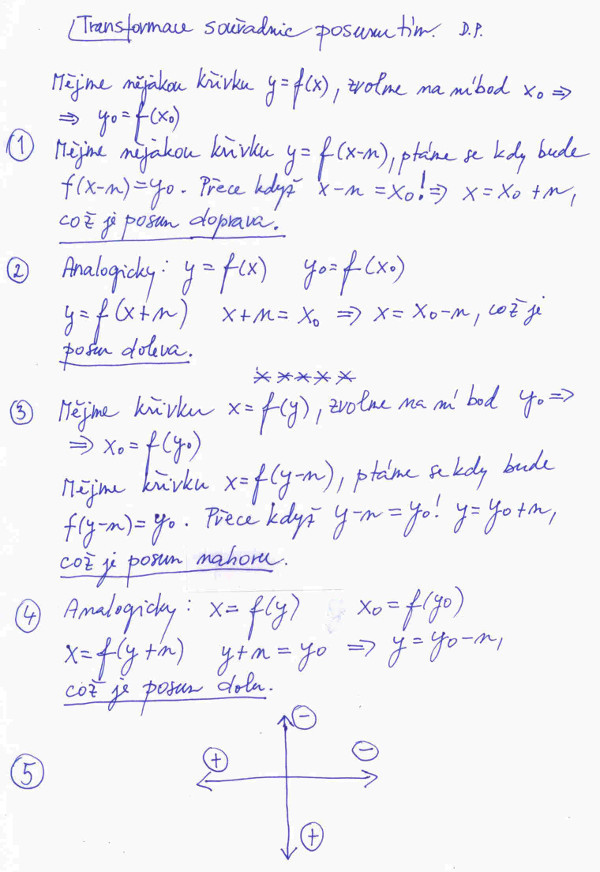 Transformace souřadnic posunutím. D.P.
Mějme nějakou křivku y=f(x), zvolme na ní bod x₀ ⇒
⇒ y₀=f(x₀)
① Mějme nějakou křivku y=f(x-n), ptáme se kdy bude
f(x-n)=y₀. Přece když x-n=x₀! ⇒ x=x₀+n,
což je posun doprava.
② Analogicky: y=f(x) y₀=f(x₀)
y=f(x+n) x+n=x₀ ⇒ x=x₀-n, což je
posun doleva.
×××××
③ Mějme křivku x=f(y), zvolme na ní bod y₀ ⇒
⇒ x₀=f(y₀)
Mějme křivku x=f(y-n), ptáme se kdy bude
f(y-n)=y₀. Přece když y-n=y₀! y=y₀+n,
což je posun nahoru.
④ Analogicky: x=f(y) x₀=f(y₀)
x=f(y+n) y+n=y₀ ⇒ y=y₀-n,
což je posun dolu.
⊖
⊕ ⊖
⑤
⊕